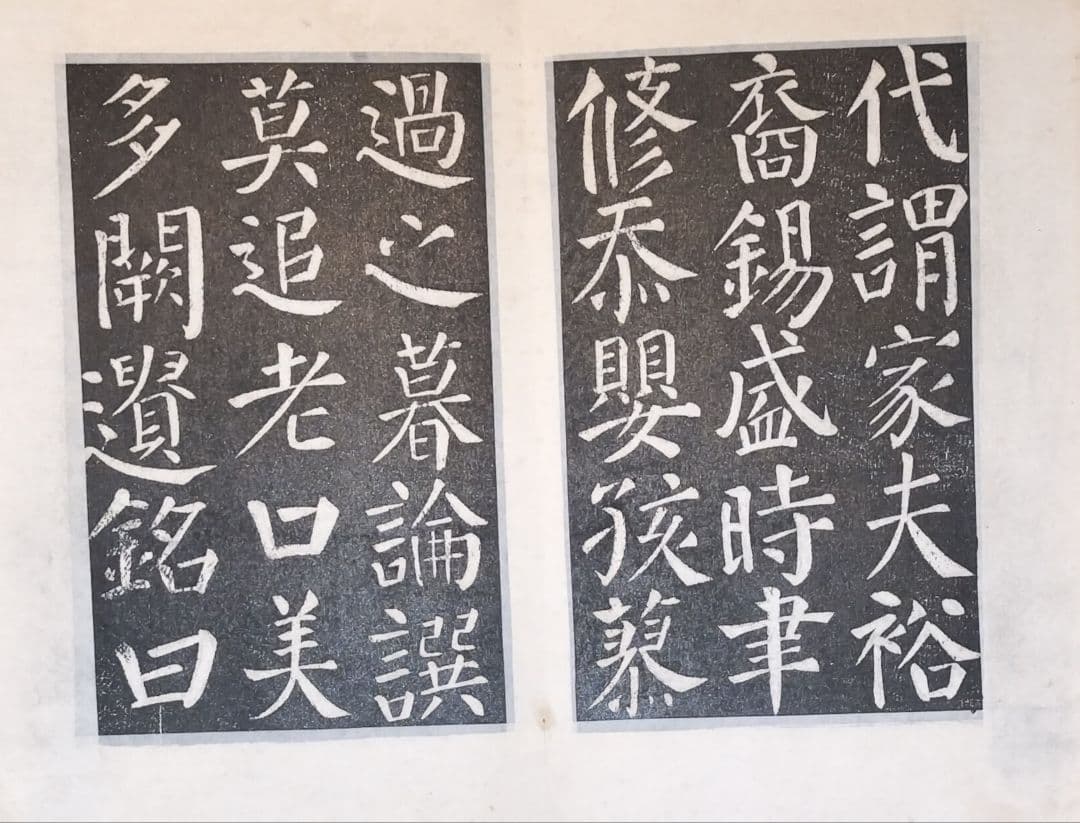 代謂家夫裕
裔錫盛時聿
修忝嬰孩蓼
過之暮論譔
莫追老口美
多闕遺銘曰